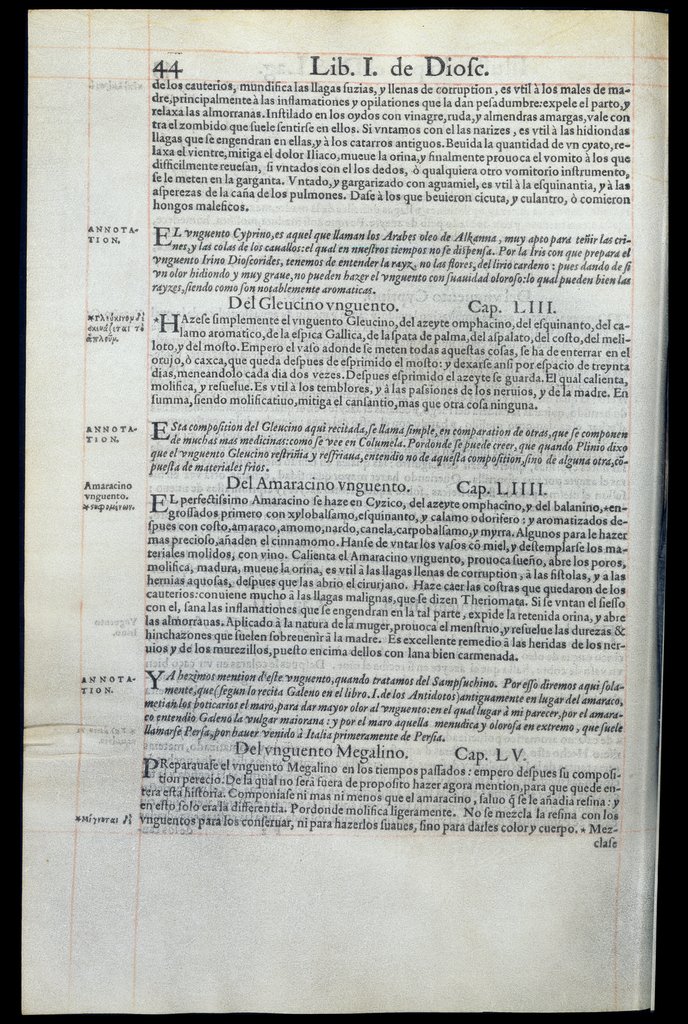 44 Lib. I. de Diosc.
de los cauterios, mundifica las llagas suzias, y llenas de corruption, es vtil à los males de ma-
dre, principalmente à las inflamationes y opilationes que la dan pesadumbre: expele el parto, y
relaxa las almorranas. Instilado en los oydos con vinagre, ruda, y almendras amargas, vale con
tra el zombido que suele sentirse en ellos. Si vntamos con el las narizes, es vtil à las hidiondas
llagas que se engendran en ellas, y à los catarros antiguos. Beuida la quantidad de vn cyato, re-
laxa el vientre, mitiga el dolor Iliaco, mueue la orina, y finalmente prouoca el vomito à los que
difficilmente reuesan, si vntados con el los dedos, ò qualquiera otro vomitorio instrumento,
se le meten en la garganta. Vntado, y gargarizado con aguamiel, es vtil à la esquinantia, y à las
asperezas de la caña de los pulmones. Dase à los que beuieron cicuta, y culantro, ò comieron
hongos maleficos.
ANNOTA-
TION.
EL vnguento Cyprino, es aquel que llaman los Arabes oleo de Alkanna, muy apto para teñir las cri-
nes, y las colas de los cauallos: el qual en nuestros tiempos no se dispensa. Por la Iris con que prepara el
vnguento Irino Dioscorides, tenemos de entender la rayz, no las flores, del lirio cardeno: pues dando de si
vn olor hidiondo y muy graue, no pueden hazer el vnguento con suauidad oloroso: lo qual pueden bien las
rayzes, siendo como son notablemente aromaticas.
Del Gleucino vnguento. Cap. LIII.
*Γλεύκινον δὲ
σκευάζεται τὸ
ἁπλοῦν.
*HAzese simplemente el vnguento Gleucino, del azeyte omphacino, del esquinanto, del ca-
lamo aromatico, de la espica Gallica, de la spata de palma, del aspalato, del costo, del meli-
loto, y del mosto. Empero el vaso adonde se meten todas aquestas cosas, se ha de enterrar en el
orujo, ò caxca, que queda despues de esprimido el mosto: y dexarse ansi por espacio de treynta
dias, meneandolo cada dia dos vezes. Despues esprimido el azeyte se guarda. El qual calienta,
molifica, y resuelue. Es vtil à los temblores, y à las passiones de los neruios, y de la madre. En
summa, siendo molificatiuo, mitiga el cansantio, mas que otra cosa ninguna.
ANNOTA-
TION.
ESta composition del Gleucino aqui recitada, se llama simple, en comparation de otras, que se componen
de muchas mas medicinas: como se vee en Columela. Pordonde se puede creer, que quando Plinio dixo
que el vnguento Gleucino restriñia y resfriaua, entendio no de aquesta composition, sino de alguna otra, cō-
puesta de materiales frios.
Del Amaracino vnguento. Cap. LIIII.
Amaracino
vnguento.
EL perfectissimo Amaracino se haze en Cyzico, del azeyte omphacino, y del balanino, *en-
grossados primero con xylobalsamo, esquinanto, y calamo odorifero: y aromatizados de-
spues con costo, amaraco, amomo, nardo, canela, carpobalsamo, y myrra. Algunos para le hazer
mas precioso, añaden el cinnamomo. Hanse de vntar los vasos cō miel, y destemplarse los ma-
teriales molidos, con vino. Calienta el Amaracino vnguento, prouoca sueño, abre los poros,
molifica, madura, mueue la orina, es vtil à las llagas llenas de corruption, à las fistolas, y a las
hernias aquosas, despues que las abrio el cirurjano. Haze caer las costras que quedaron de los
cauterios: conuiene mucho à las llagas malignas, que se dizen Theriomata. Si se vntan el siesso
con el, sana las inflamationes que se engendran en la tal parte, expide la retenida orina, y abre
las almorranas. Aplicado à la natura de la muger, prouoca el menstruo, y resuelue las durezas &
hinchazones que suelen sobreuenir à la madre. Es excellente remedio à las heridas de los ner-
uios y de los murezillos, puesto encima dellos con lana bien carmenada.
ANNOTA-
TION.
YA hezimos mention d'este vnguento, quando tratamos del Sampsuchino. Por esso diremos aqui sola-
mente, que (segun lo recita Galeno en el libro. I. de los Antidotos) antiguamente en lugar del amaraco,
metian los boticarios el maro, para dar mayor olor al vnguento: en el qual lugar à mi parecer, por el amara-
co entendio Galeno la vulgar maiorana: y por el maro aquella menudica y olorosa en extremo, que suele
llamarse Persa, por hauer venido à Italia primeramente de Persia.
Del vnguento Megalino. Cap. LV.
PReparauase el vnguento Megalino en los tiempos passados: empero despues su composi-
tion perecio. De la qual no será fuera de proposito hazer agora mention, para que quede en-
tera esta historia. Componiase ni mas ni menos que el amaracino, saluo q̃ se le añadia resina: y
en esto solo era la differentia. Pordonde molifica ligeramente. No se mezcla la resina con los
*Μίγνυται δὲ
vnguentos para los conseruar, ni para hazerlos suaues, sino para darles color y cuerpo. * Mez-
clase